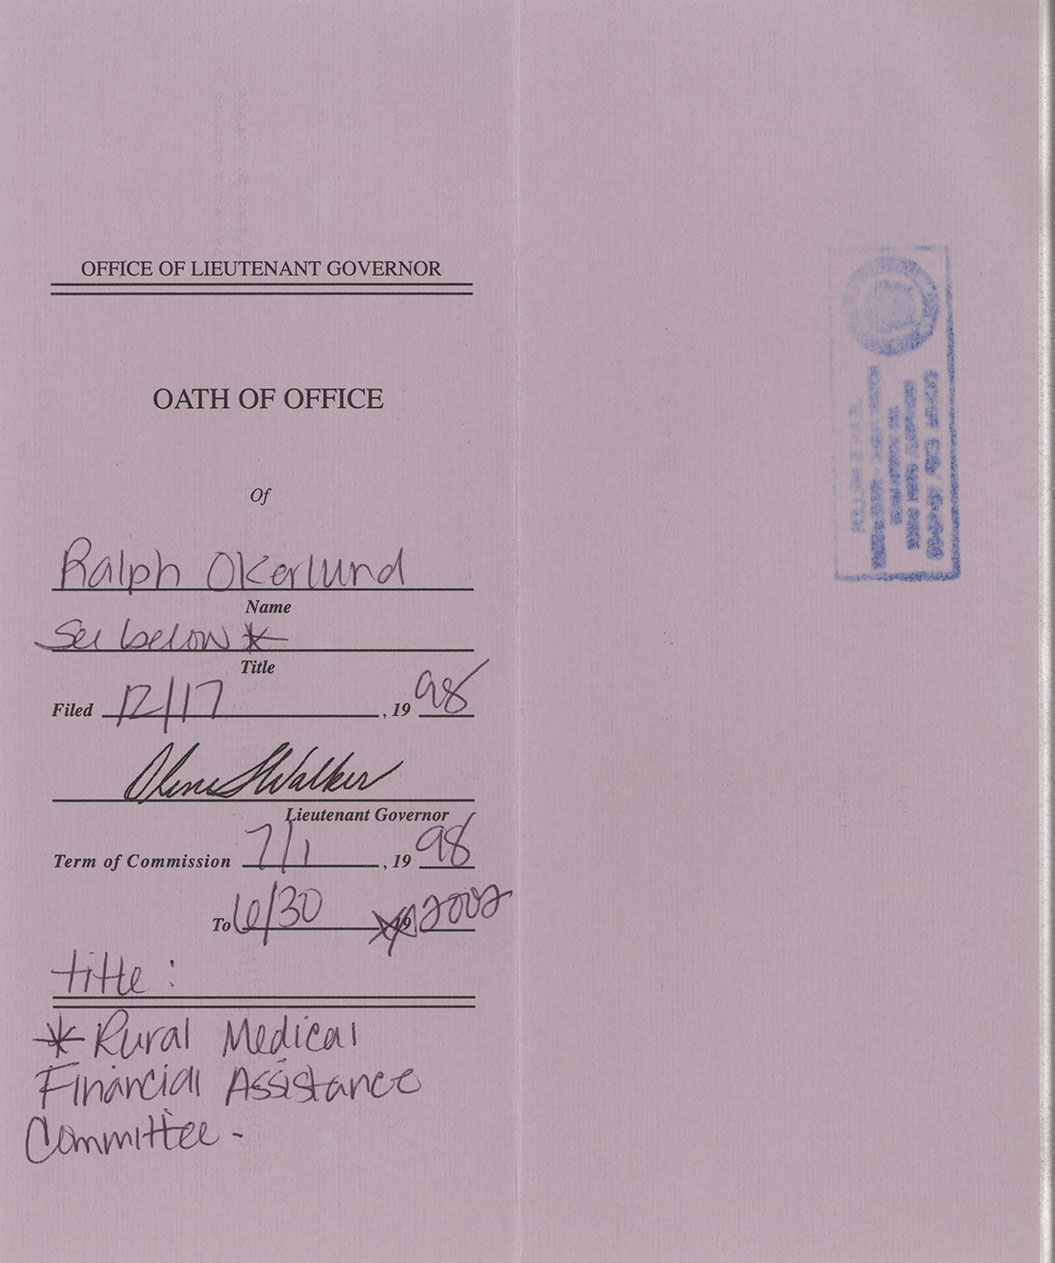 OFFICE OF LIEUTENANT GOVERNOR
OATH OF OFFICE
Of
Ralph Okerlund
Name
See below *
Title
Filed 12/17, 19 98
Olene S Walker
Lieutenant Governor
Term of Commission 7/1, 19 98
To 6/30 19 2002
title:
* Rural Medical
Financial Assistance
Committee -